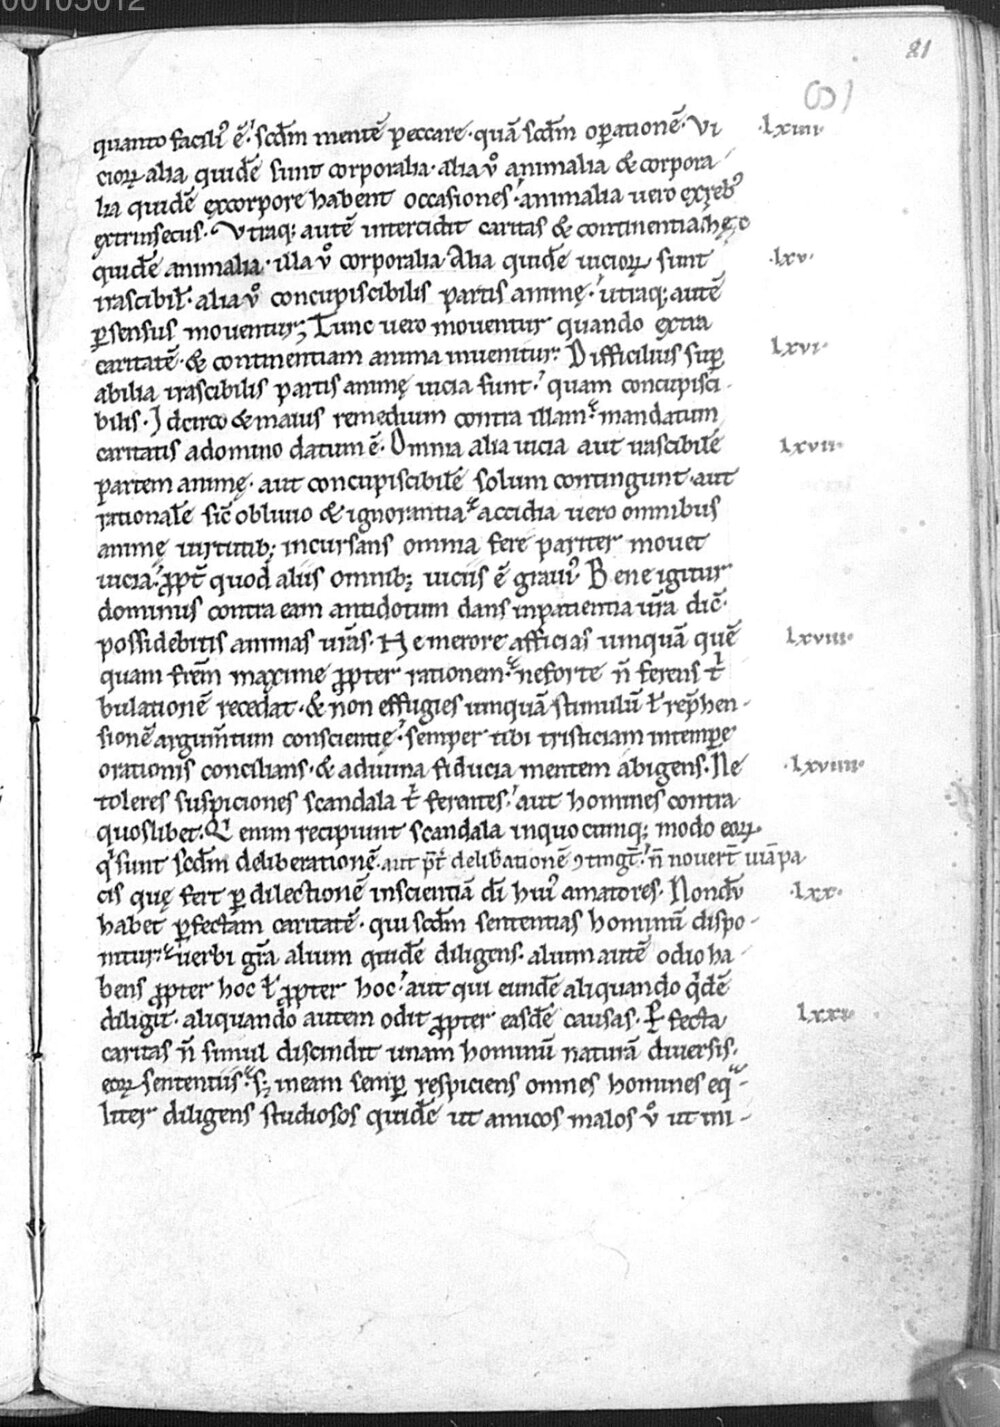 00105012
81
quanto facili᾽ ē. scdm mentē peccare. quā scdm oꝑationē. Vi ·lxiiii·
cioꝝ alia quidē sunt corporalia. alia v̊ animalia & corpora
lia quidē ex corpore habent occasiones. animalia uero ex reb᾽
extrinsecus. Vtraq; autē intercidit caritas & continentia hęc
quidē animalia. illa v̊ corporalia. Alia quidē uicioꝝ sunt ·lxv·
irascibil̄. alia v̊ concupiscibilis partis animę. utraq; autē
ꝑ sensus mouentur; Tunc uero mouentur quando extra
caritatē. & continentiam anima inuenitur. Difficilius suꝑ ·lxvi·
abilia irascibilis partis animę uicia sunt. quam concupisci-
bilis. Idcirco & maius remedium contra illam mandatum
caritatis a domino datum ē. Omnia alia uicia aut irascibilē ·lxvii·
partem animę. aut concupiscibilē solum contingunt. aut
rationalē sic̄ obliuio & ignorantia. accidia uero omnibus
animę uirtutib; incursans omnia fere pariter mouet
uicia. ꝓpt̄ quod aliis omnib; uiciis ē graui᾽. Bene igitur
dominus contra eam antidotum dans inpatientia ur̄a dic̄.
possidebitis animas ur̄as. Ne merore afficias umquā quē ·lxviii·
quam fr̄em maxime ꝓpter rationem. ne forte n̄ ferens t͛
bulationē recedat. & non effugies umquā stimulū ł rep̄hen-
sionē argum̄tum conscientię. semper tibi tristiciam in tempore
orationis concilians. & a diuina fiducia mentem abigens. Ne ·lxviiii·
toleres suspiciones scandala ł ferentes. aut homines contra
quoslibet. Q͛ enim recipiunt scandala in quocumq; modo eoꝝ
q͛ sunt scdm deliberationē. aut p̄t̄ delib̄ationē ꝯtingt̄. n̄ nouer̄t uiā pa
cis quę fert ꝑ dilectionē in scientiā dī hui᾽ amatores. Nondū ·lxx·
habet ꝑfectam caritatē. qui scdm sententias hominū dispo-
nitur. uerbi gr̄a alium quidē diligens. alium autē odio ha-
bens ꝓpter hoc ł ꝓpter hoc. aut qui eundē aliquando q͛dē
diligit. aliquando autem odit ꝓpter easdē causas. Ꝑfecta ·lxxi·
caritas n̄ simul discindit unam hominū naturā diuersis.
eoꝝ sententiis. s; in eam semꝑ respiciens omnes homines eqͣ-
liter diligens studiosos quidē ut amicos malos v̊ ut ini-